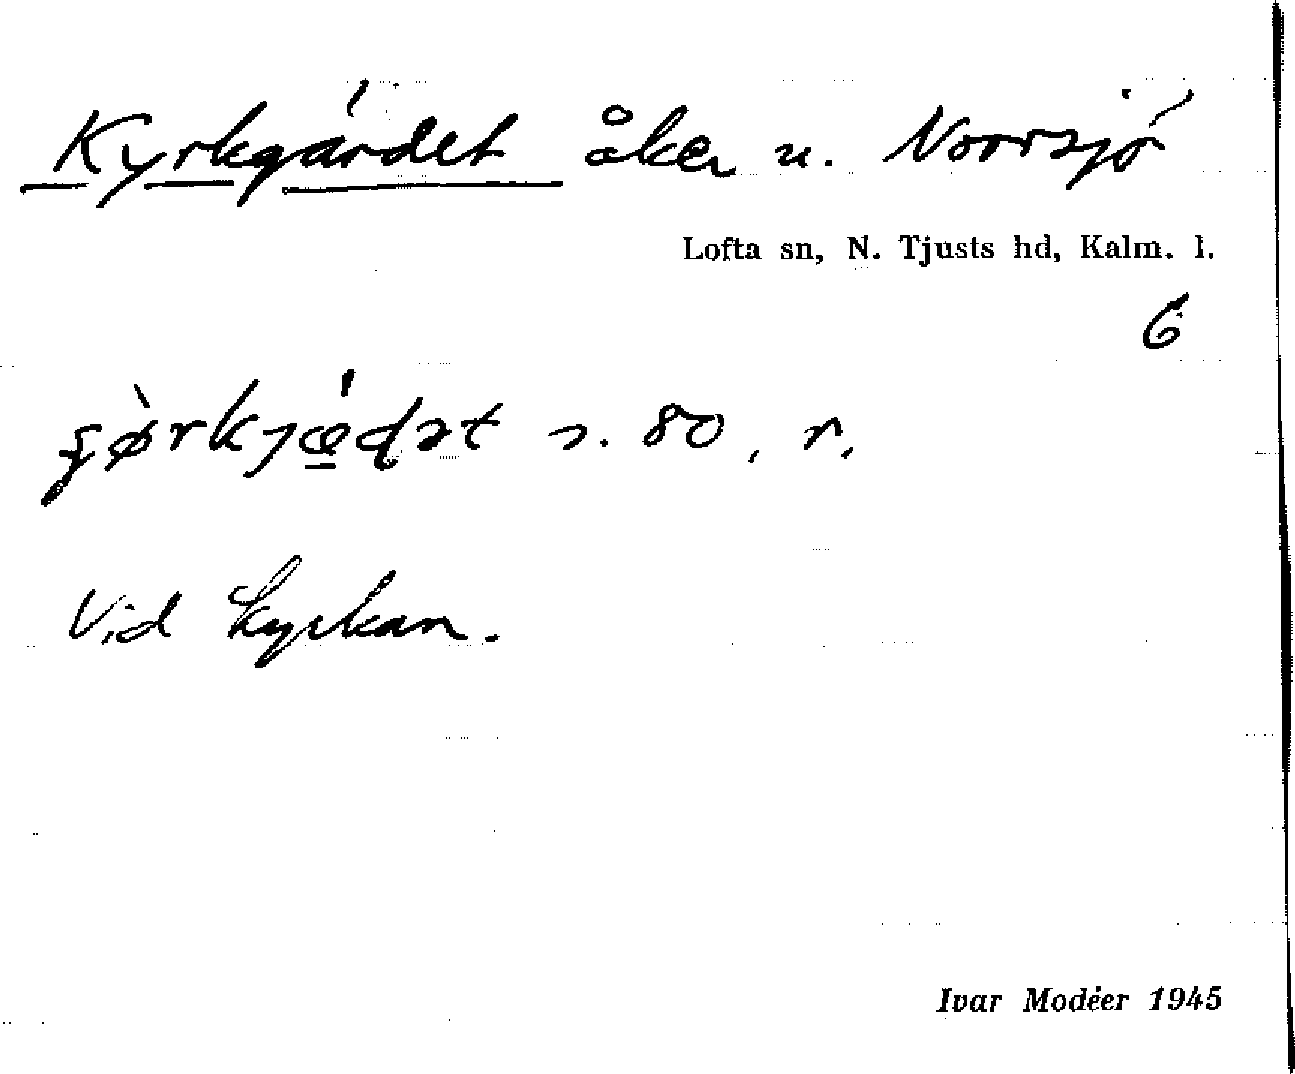 Kyrkgärdet åker u. Norrsjö
Lofta sn, N. Tjusts hd, Kalm. l.
6
ɕø̀rkjǽ̱ɖət s. 80, r.
Vid kyrkan.
Ivar Modéer 1945